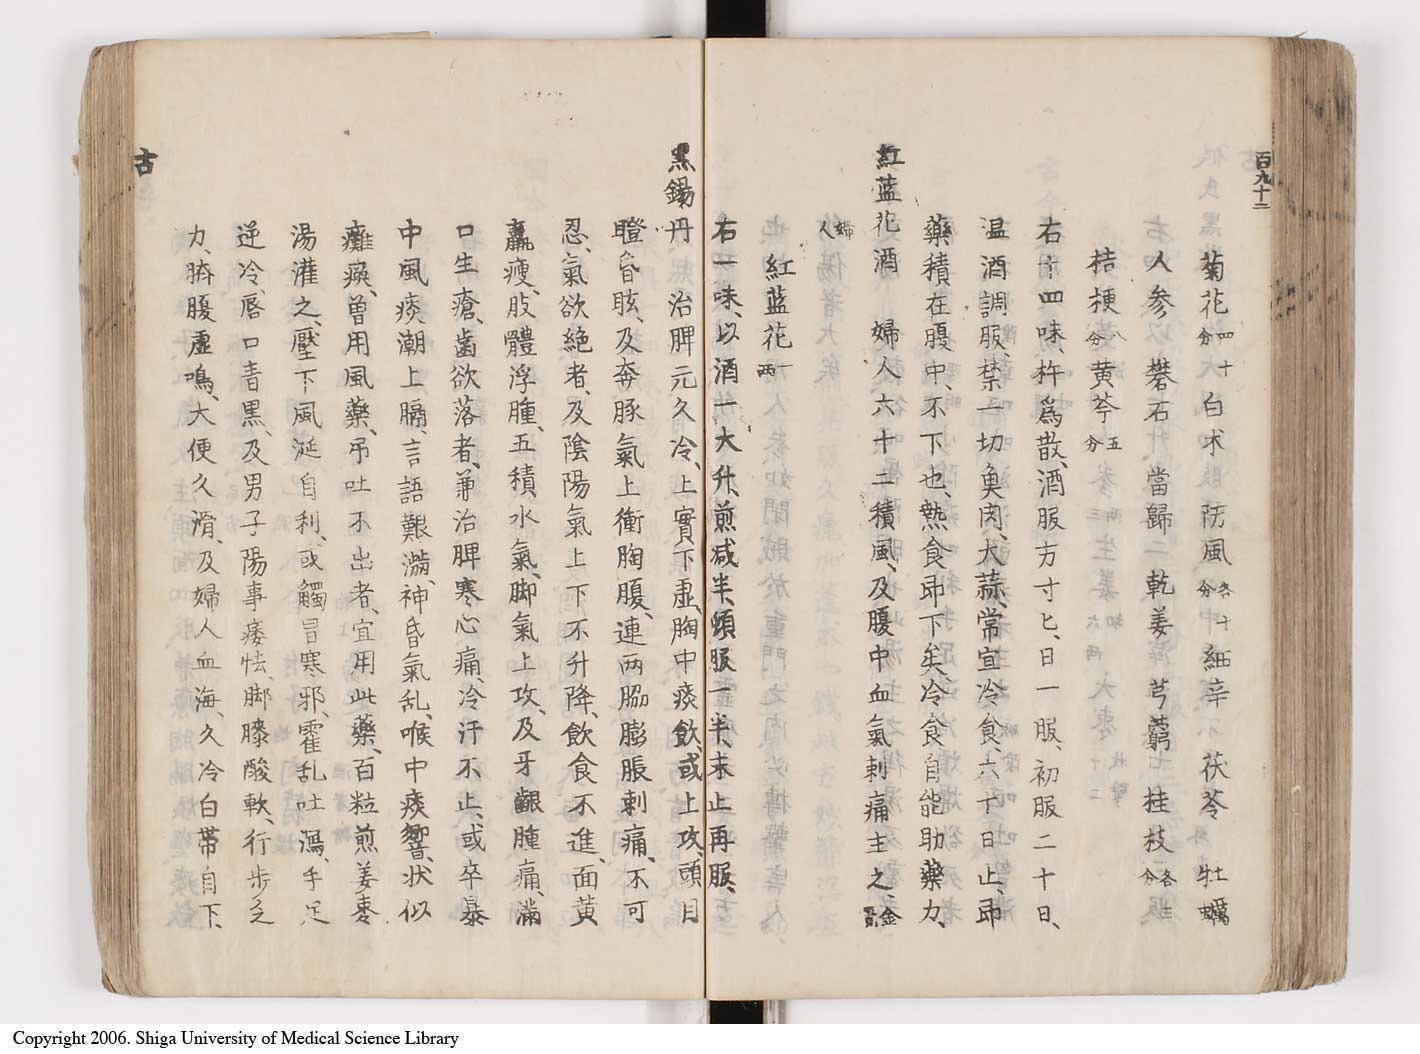 百九十二
菊花四十分 白朮 防風各十分 細辛 茯苓 牡蠣
人参 礬石 當歸二 乾姜 芎藭 桂枝各三分
桔梗八分 黄芩五分
右十四味、杵為散、酒服方寸匕、日一服、初服二十日、
温酒調服、禁一切魚肉、大蒜、常宜冷食、六十日止、即
藥積在腹中、不下也、熱食即下矣、冷食自能助藥力、
紅蓝花酒 婦人六十二種風、及腹中血氣刺痛主之金匱
婦人
紅蓝花一两
右一味、以酒一大升、煎减半、頓服一半、未止再服、
黑錫丹 治脾元久冷、上實下虚、胸中痰飲、或上攻、頭目
瞪昏眩、及奔豚氣上衝胸腹、連两脇膨脹刺痛、不可
忍、氣欲絶者、及陰陽氣上下不升降、飲食不進、面黄
羸瘦、肢體浮腫、五積、水氣、脚氣上攻、及牙齦腫痛、滿
口生瘡、齒欲落者、兼治脾寒心痛、冷汗不止、或卒暴
中風痰潮上膈、言語艱澀、神昏氣乱、喉中痰響、状似
癱瘓、曽用風藥、吊吐不出者、宜用此藥、百粒煎姜棗
湯灌之、壓下風涎自利、或觸冒寒邪、霍乱吐瀉、手足
逆冷、唇口青黒、及男子陽事痿怯、脚膝酸軟、行步乏
力、臍腹虚鳴、大便久滑、及婦人血海久冷白帯自下、
古
Copyright 2006. Shiga University of Medical Science Library